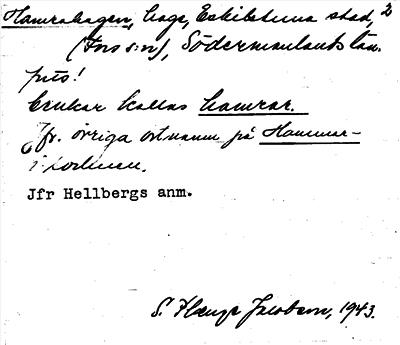 Hamrahagen, hage, Eskilstuna stad, 2
(Fors sn), Södermanlands län.
hus!
brukar kallas hamrar.
Jfr. övriga ortnamn på Hammar-
i socknen.
Jfr Hellbergs anm.
S. Hænge Jacobsen, 1943.